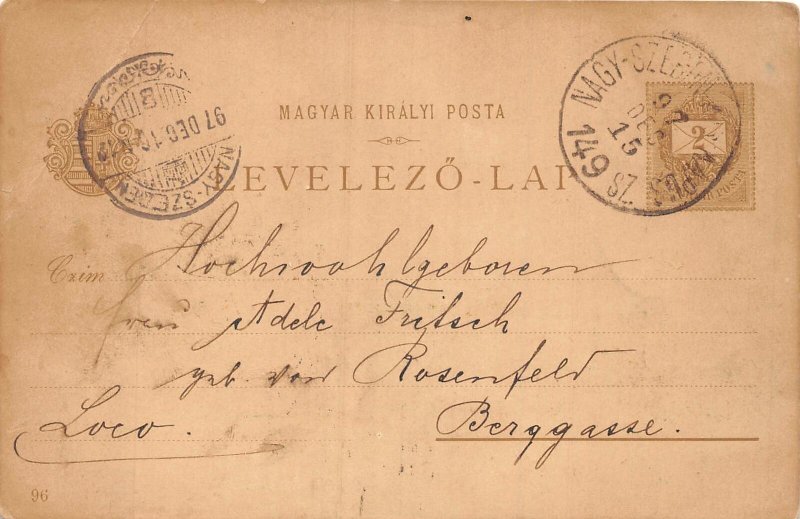 MAGYAR KIRÁLYI POSTA
LEVELEZŐ-LAP
NAGY-SZEBEN
97 DEC
NAGY-SZEBEN
97
DEC
15
149 SZ
2
POSTA
Czim
Hochwohlgeboren
Frau Adele Fritsch
geb. von Rosenfeld
Loco. Berggasse.
96